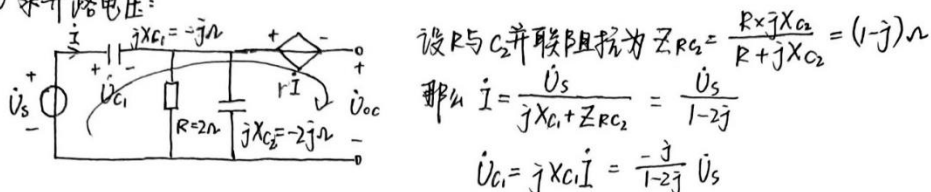 求开路电压:
İ
jXc₁=-jΩ
+ -
+
U̇s
-
+ U̇c₁ -
R=2Ω
jXc₂=-2jΩ
rİ
+
U̇oc
-
设R与C₂并联阻抗为 Z_RC₂ = R×jXc₂ / R+jXc₂ = (1-j)Ω
那么 İ = U̇s / jXc₁+Z_RC₂ = U̇s / 1-2j
U̇c₁ = jXc₁İ = -j / 1-2j U̇s